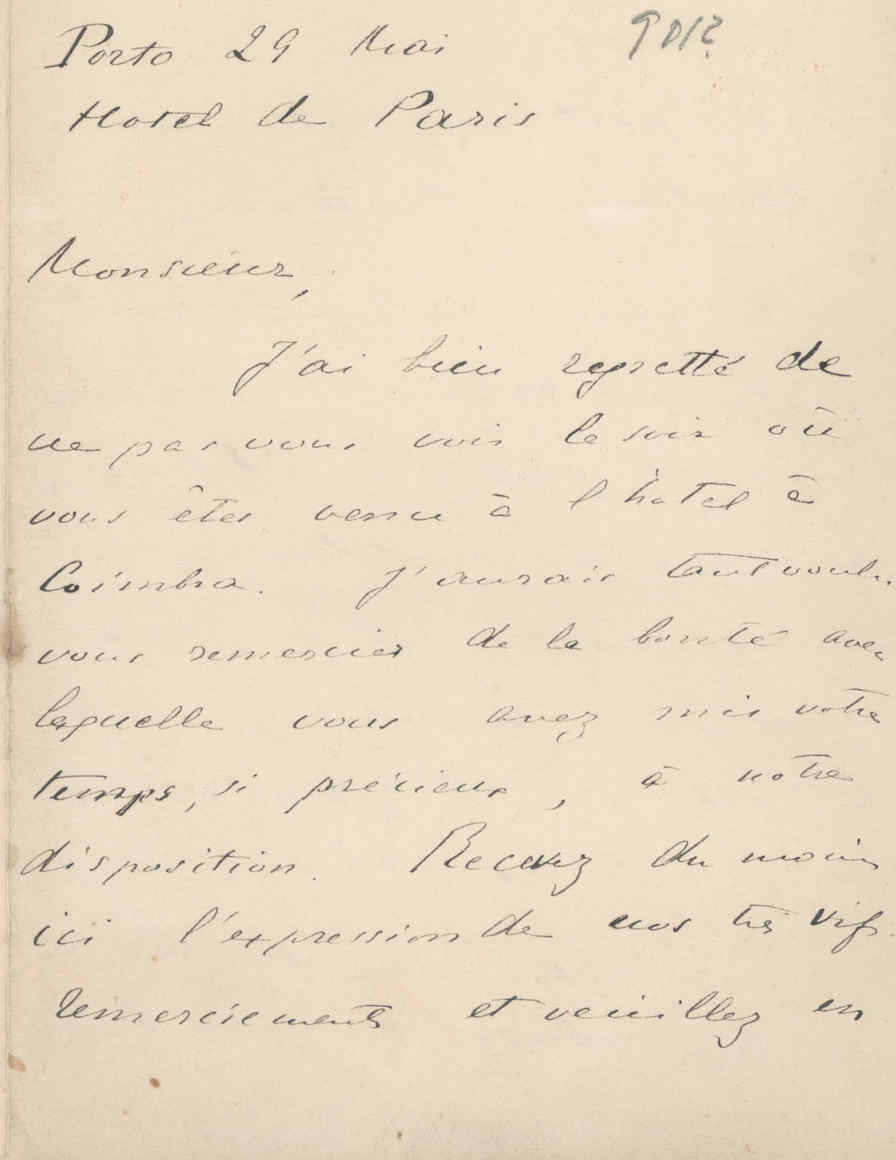 Porto 29 Mai
Hotel de Paris
Monsieur,
J'ai bien regretté de
ne pas vous voir le soir où
vous êtes venu à l'hotel à
Coimbra. J'aurais tant voulu
vous remercier de la bonté avec
laquelle vous avez mis votre
temps, si précieux, à notre
disposition. Recevez du moins
ici l'expression de nos très vifs
remerciements et veuillez en